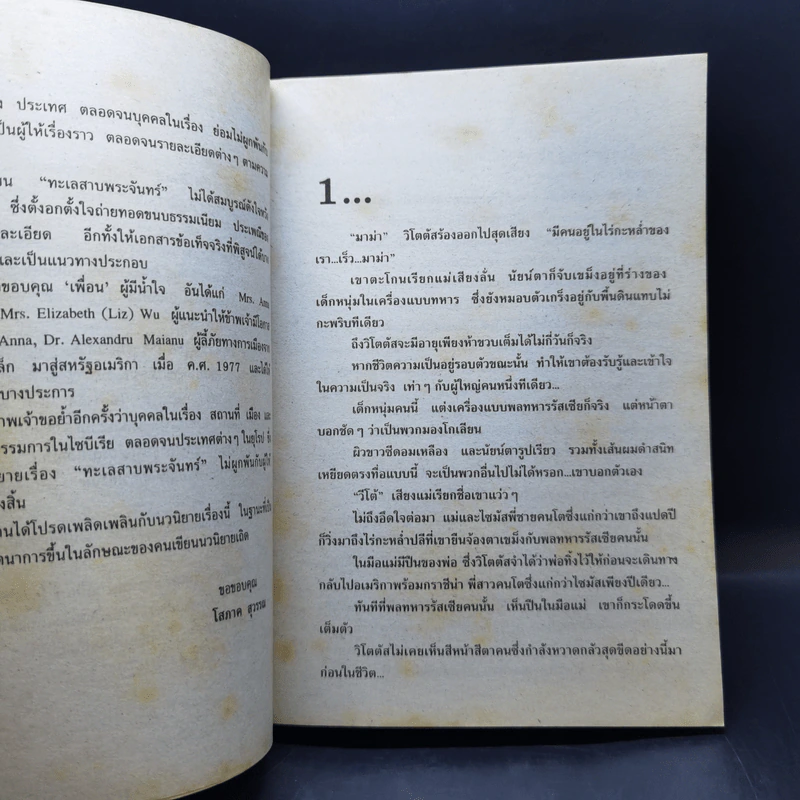 ง ประเทศ ตลอดจนบุคคลในเรื่อง ย่อมไม่ผูกพันกับ
ป็นผู้ให้เรื่องราว ตลอดจนรายละเอียดต่างๆ ตามความ
ยน “ทะเลสาบพระจันทร์” ไม่ได้สมบูรณ์ดังใจหวัง
ซึ่งตั้งอกตั้งใจถ่ายทอดขนบธรรมเนียม ประเพณีของ
ละเอียด อีกทั้งให้เอกสารข้อเท็จจริงที่พิสูจน์ได้บาง
และเป็นแนวทางประกอบ
ขอบคุณ ‘เพื่อน’ ผู้มีน้ำใจ อันได้แก่ Mrs. Anna
Mrs. Elizabeth (Liz) Wu ผู้แนะนำให้ข้าพเจ้ามีโอกาส
Anna, Dr. Alexandru Maianu ผู้ลี้ภัยทางการเมืองจาก
ล็ก มาสู่สหรัฐอเมริกา เมื่อ ค.ศ. 1977 และได้ให้
บางประการ
าพเจ้าขอย้ำอีกครั้งว่าบุคคลในเรื่อง สถานที่ เมือง และ
รรมการในไซบีเรีย ตลอดจนประเทศต่างๆ ในยุโรป ที่
ยายเรื่อง “ทะเลสาบพระจันทร์” ไม่ผูกพันกับผู้ให้
งสิ้น
านได้โปรดเพลิดเพลินกับนวนิยายเรื่องนี้ ในฐานะที่เป็น
ฒนาการขึ้นในลักษณะของคนเขียนนวนิยายเถิด
ขอขอบคุณ
โสภาค สุวรรณ
1...
“มาม่า” วิโตตัสร้องออกไปสุดเสียง “มีคนอยู่ในไร่กะหล่ำของ
เรา...เร็ว...มาม่า”
เขาตะโกนเรียกแม่เสียงลั่น นัยน์ตาก็จับเขม็งอยู่ที่ร่างของ
เด็กหนุ่มในเครื่องแบบทหาร ซึ่งยังหมอบตัวเกร็งอยู่กับพื้นดินแทบไม่
กะพริบทีเดียว
ถึงวิโตตัสจะมีอายุเพียงห้าขวบเต็มได้ไม่กี่วันก็จริง
หากชีวิตความเป็นอยู่รอบตัวขณะนั้น ทำให้เขาต้องรับรู้และเข้าใจ
ในความเป็นจริง เท่าๆ กับผู้ใหญ่คนหนึ่งทีเดียว...
เด็กหนุ่มคนนี้ แต่งเครื่องแบบพลทหารรัสเซียก็จริง แต่หน้าตา
บอกชัดๆ ว่าเป็นพวกมองโกเลียน
ผิวขาวซีดอมเหลือง และนัยน์ตารูปเรียว รวมทั้งเส้นผมดำสนิท
เหยียดตรงที่อแบบนี้ จะเป็นพวกอื่นไปไม่ได้หรอก...เขาบอกตัวเอง
“วีโต้” เสียงแม่เรียกชื่อเขาแว่วๆ
ไม่ถึงอึดใจต่อมา แม่และไซมัสพี่ชายคนโตซึ่งแก่กว่าเขาถึงแปดปี
ก็วิ่งมาถึงไร่กะหล่ำปลีที่เขายืนจ้องตาเขม็งกับพลทหารรัสเซียคนนั้น
ในมือแม่มีปืนของพ่อ ซึ่งวิโตตัสจำได้ว่าพ่อทิ้งไว้ให้ก่อนจะเดินทาง
กลับไปอเมริกาพร้อมกราซีน่า พี่สาวคนโตซึ่งแก่กว่าไซมัสเพียงปีเดียว...
ทันทีที่พลทหารรัสเซียคนนั้น เห็นปืนในมือแม่ เขาก็กระโดดขึ้น
เต็มตัว
วิโตตัสไม่เคยเห็นสีหน้าสีตาคนซึ่งกำลังหวาดกลัวสุดขีดอย่างนี้มา
ก่อนในชีวิต...